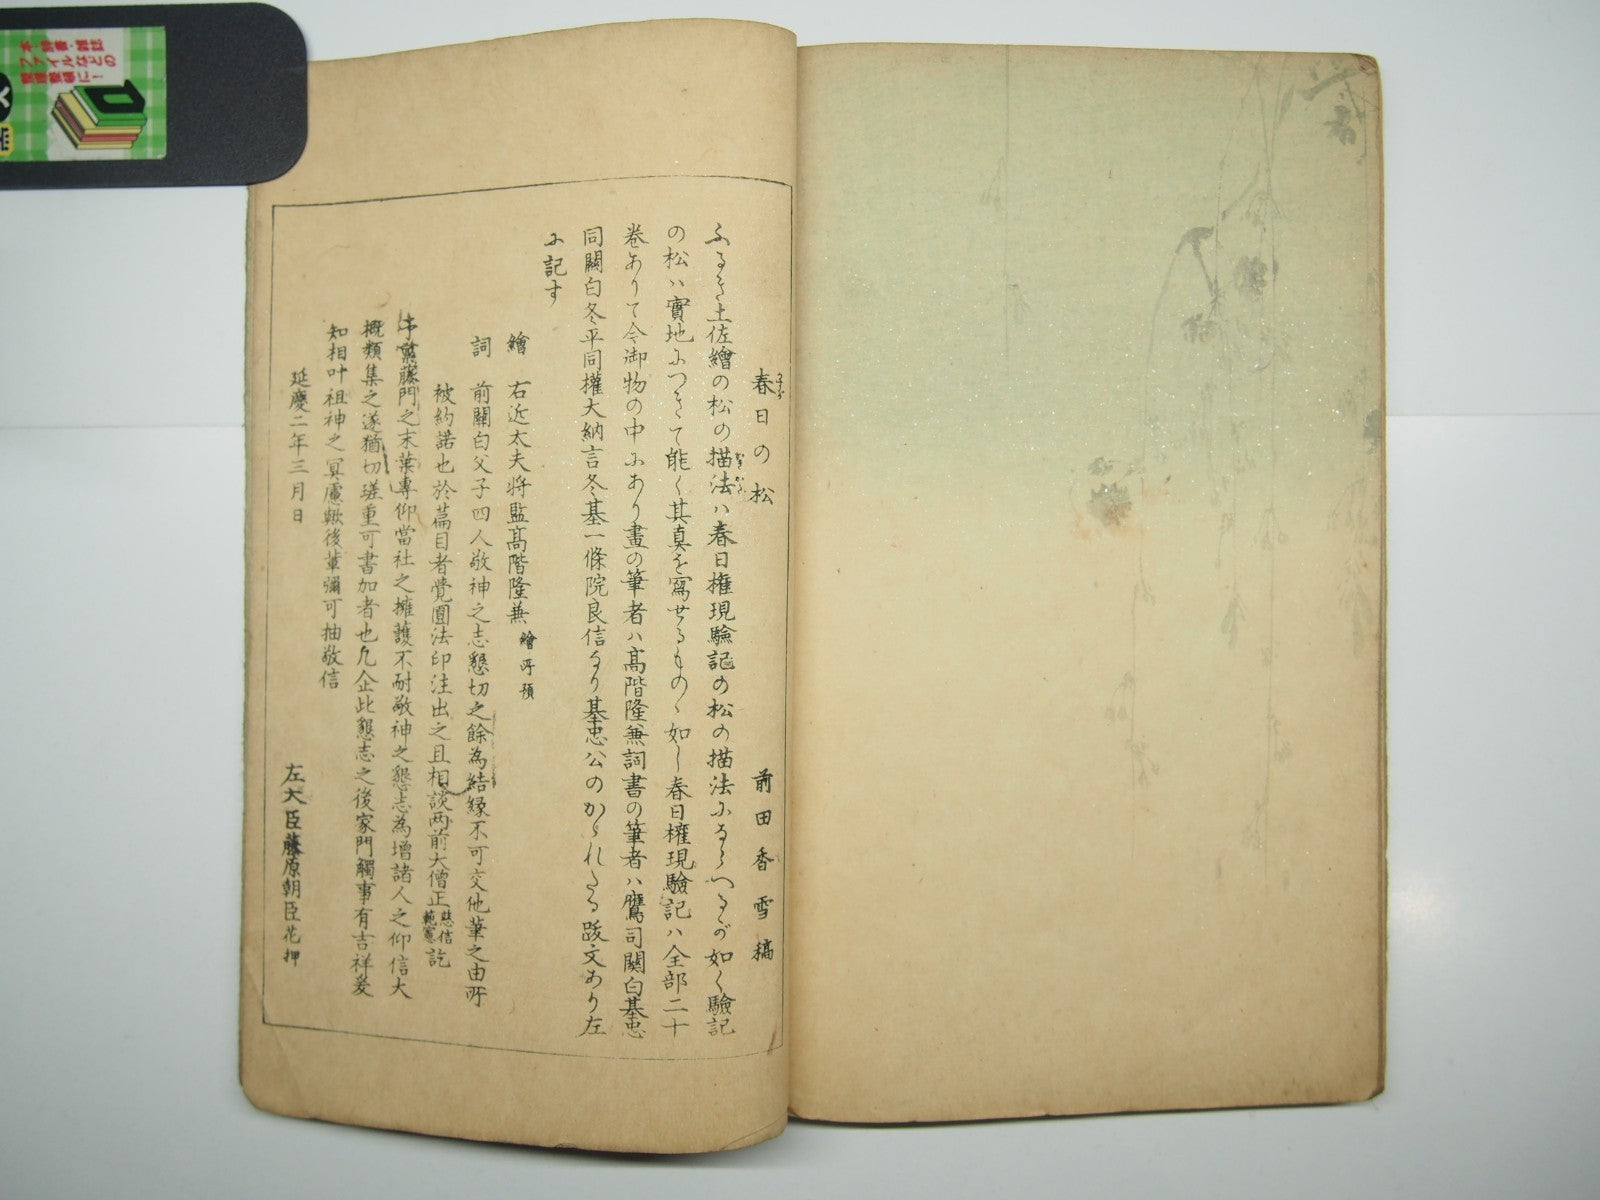 春日の松
かすが
前田香雪稿
ふるき土佐繪の松の描法ハ春日権現驗記の松の描法によらつるが如く驗記
の松ハ實地につきて能く其真を寫せるものゝ如し春日権現驗記ハ全部二十
巻ありて今御物の中にあり畫の筆者ハ髙階隆兼詞書の筆者ハ鷹司關白基忠
同關白冬平同權大納言冬基一條院良信なり基忠公のかゝれたる跋文あり左
に記す
繪 右近太夫将監髙階隆兼 繪所預
詞 前關白父子四人敬神之志懇切之餘為結縁不可交他筆之由所
被約諾也於篇目者覺圓法印注出之且相談両前大僧正 慈信 範憲 訖
藤門之末葉專仰當社之擁護不耐敬神之懇志為增諸人之仰信大
概類集之遂猶切瑳重可書加者也凡企此懇志之後家門觸事有吉祥爰
知相叶祖神之冥慮歟後輩彌可抽敬信
延慶二年三月日
左大臣藤原朝臣花押
本・辞書・雑誌
ファイルなどの
整理整頓に!